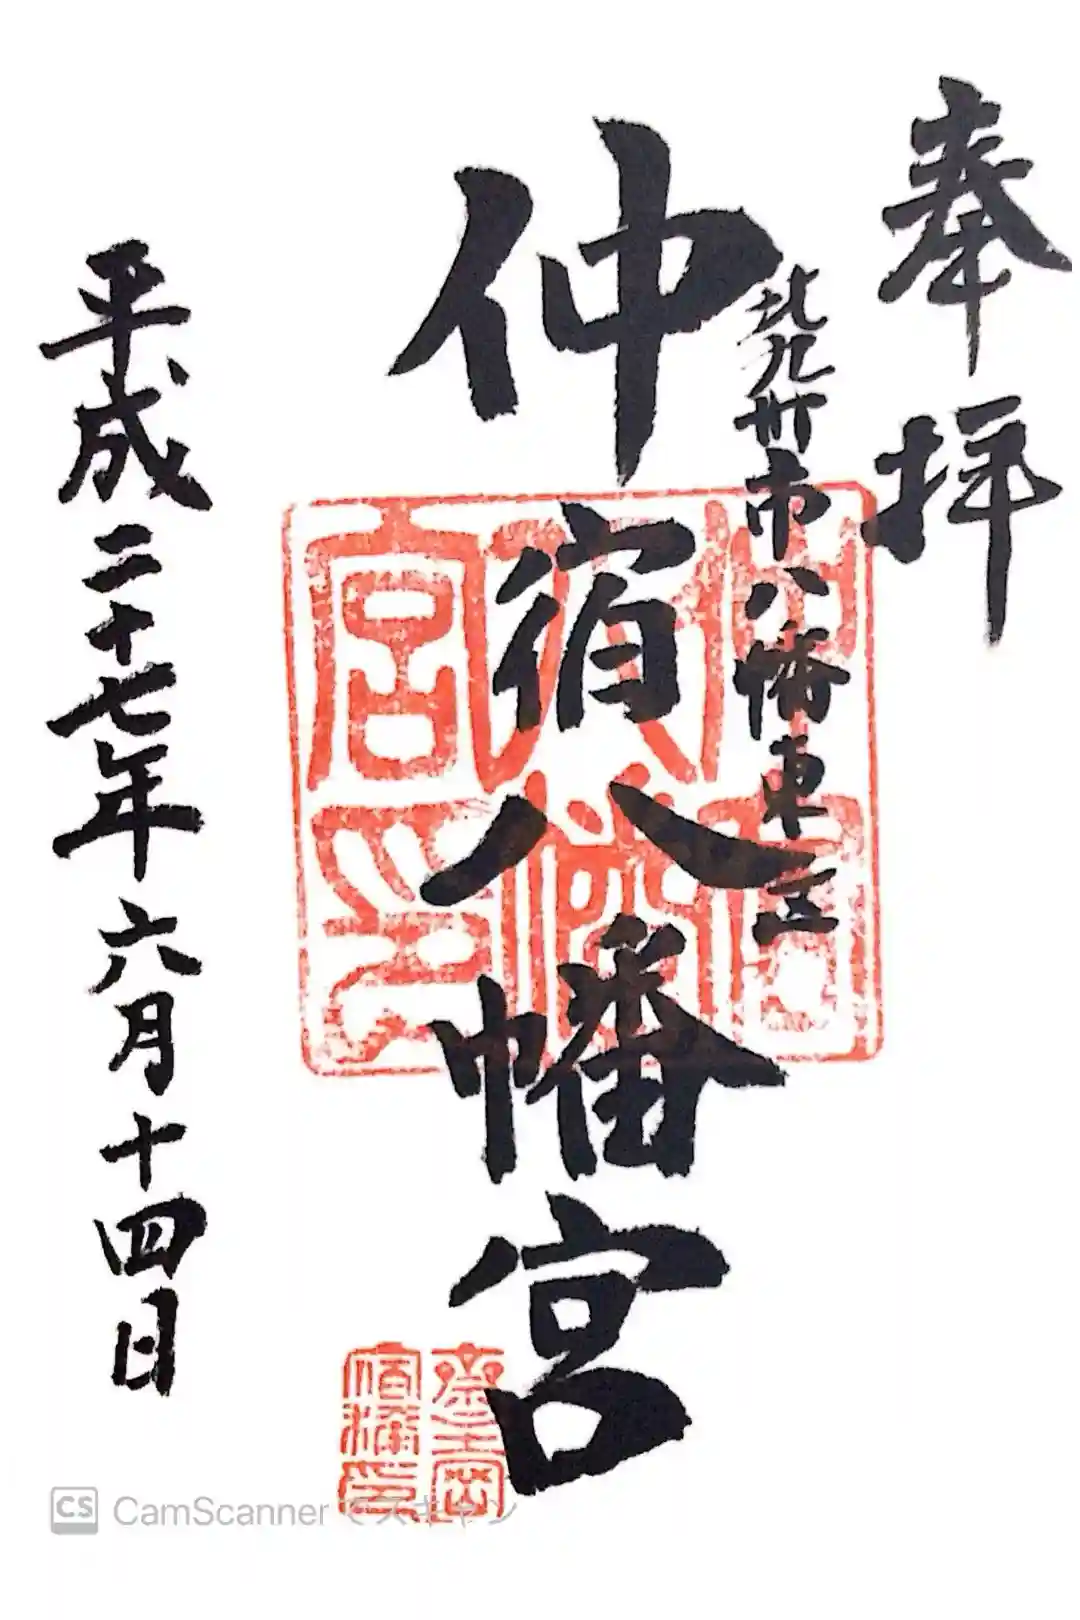 奉拝
北九州市八幡東区
仲宿八幡宮
平成二十七年六月十四日
CamScanner でスキャン